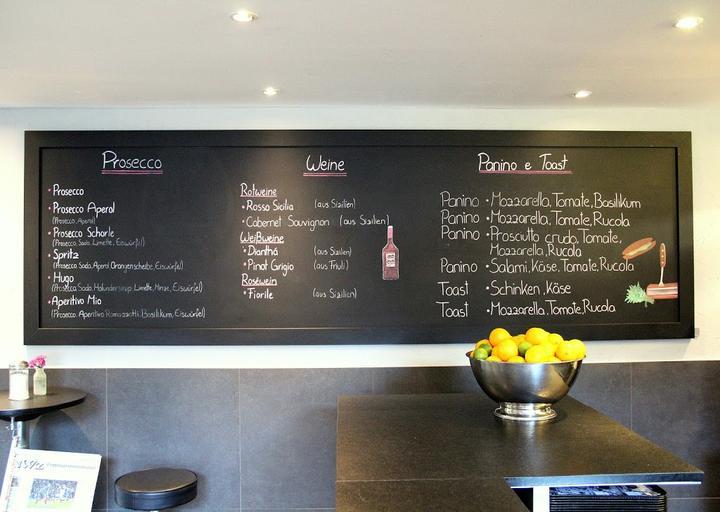 Prosecco
• Prosecco
• Prosecco Aperol
(Prosecco, Aperol)
• Prosecco Schorle
(Prosecco, Soda, Limette, Eiswürfel)
• Spritz
(Prosecco, Soda, Aperol, Orangenscheibe, Eiswürfel)
• Hugo
(Prosecco, Soda, Holundersirup, Limette, Minze, Eiswürfel)
• Aperitivo Mio
(Prosecco, Aperitivo Ramazzotti, Basilikum, Eiswürfel)
Weine
Rotweine
• Rosso Sicilia (aus Sizilien)
• Cabernet Sauvignon (aus Sizilien)
Weißweine
• Dianthá (aus Sizilien)
• Pinot Grigio (aus Friuli)
Roséwein
• Fiorile (aus Sizilien)
Panino e Toast
Panino • Mozzarella, Tomate, Basilikum
Panino • Mozzarella, Tomate, Rucola
Panino • Prosciutto crudo, Tomate,
Mozzarella, Rucola
Panino • Salami, Käse, Tomate, Rucola
Toast • Schinken, Käse
Toast • Mozzarella, Tomate, Rucola